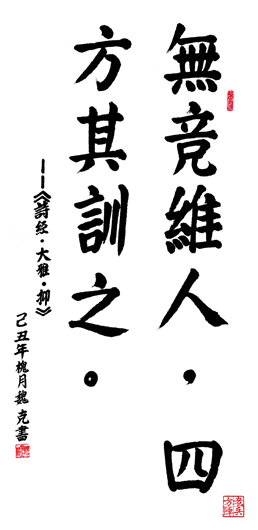 無竞維人，四
方其訓之。
——《詩经·大雅·抑》
己丑年槐月魏克書